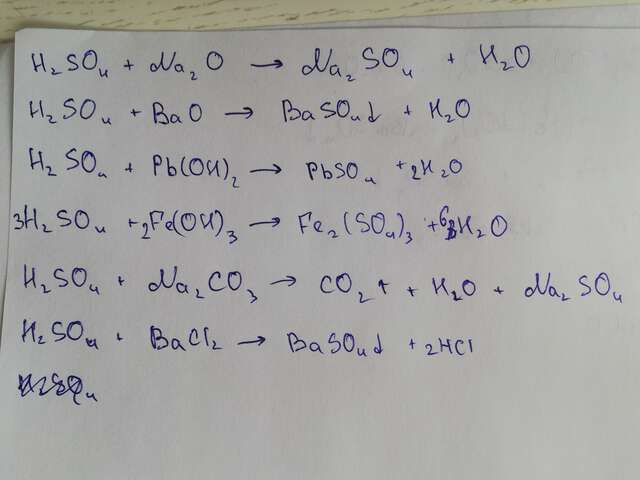 H₂SO₄ + Na₂O → Na₂SO₄ + H₂O
H₂SO₄ + BaO → BaSO₄↓ + H₂O
H₂SO₄ + Pb(OH)₂ → PbSO₄ + 2H₂O
3H₂SO₄ + 2Fe(OH)₃ → Fe₂(SO₄)₃ + 6H₂O
H₂SO₄ + Na₂CO₃ → CO₂↑ + H₂O + Na₂SO₄
H₂SO₄ + BaCl₂ → BaSO₄↓ + 2HCl